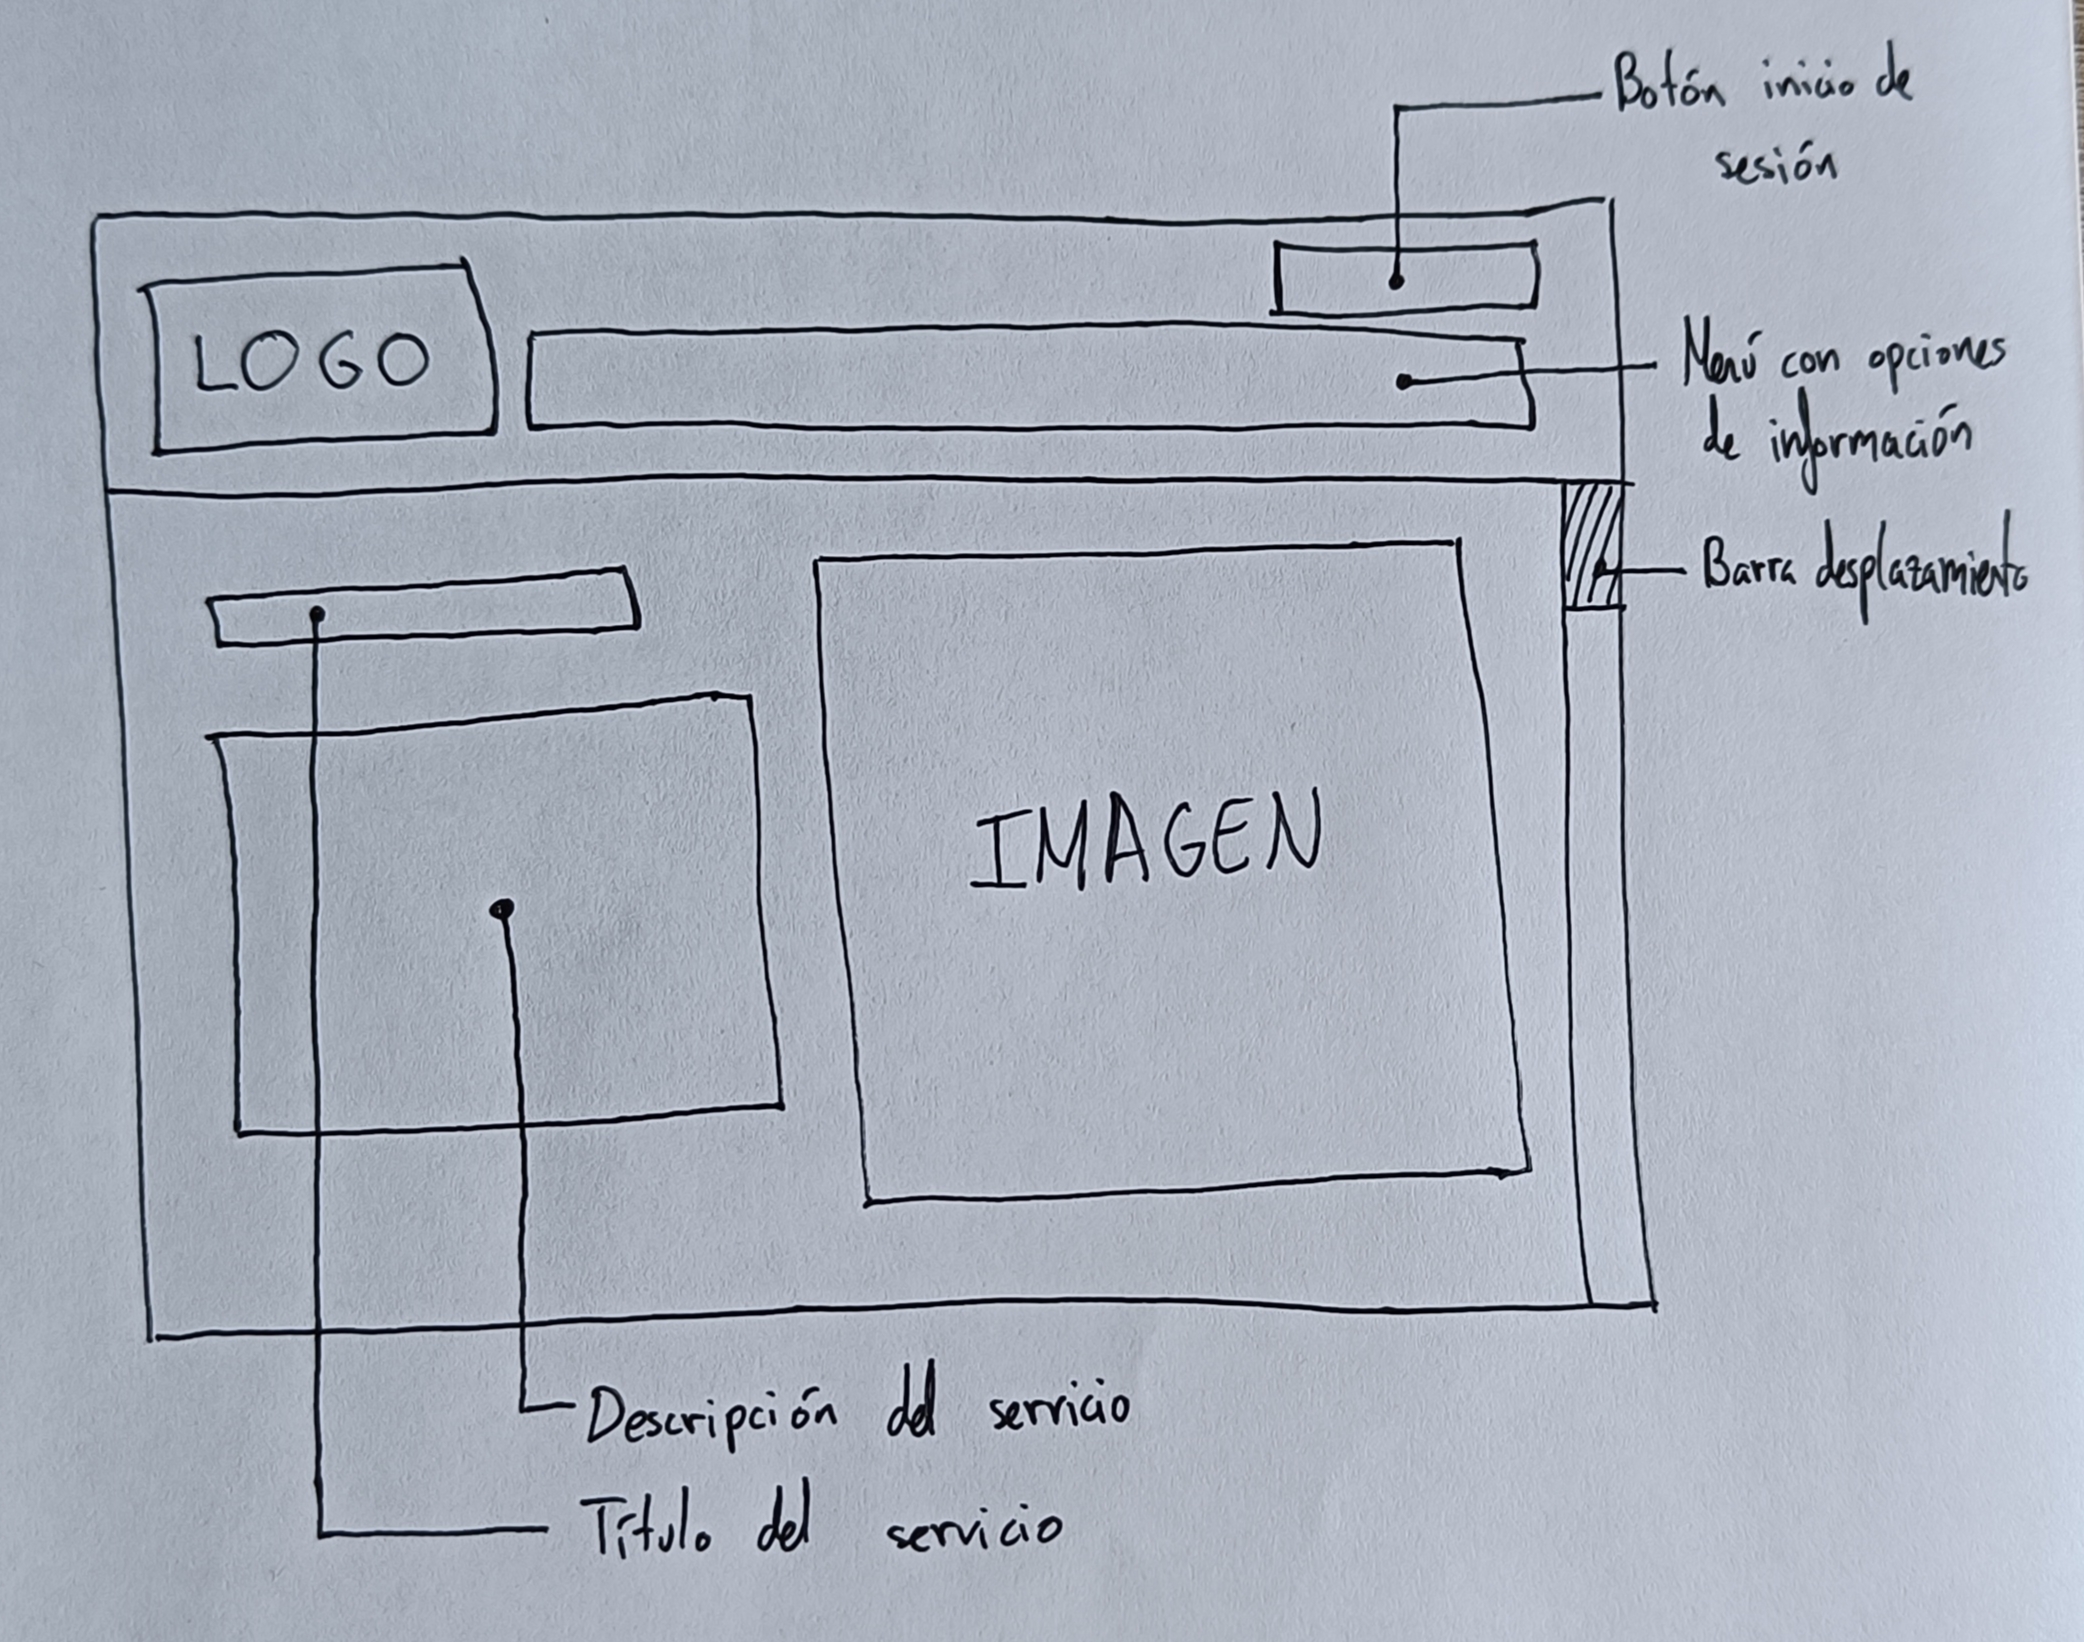 Botón inicio de
sesión
LOGO
Menú con opciones
de información
Barra desplazamiento
IMAGEN
Descripción del servicio
Título del servicio